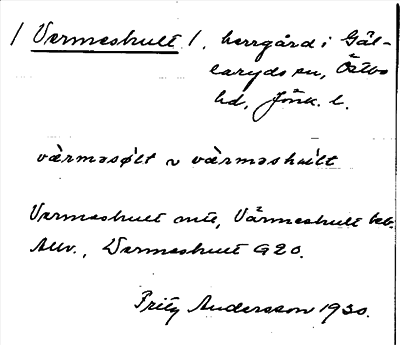 / Vermeshult /. herrgård i Gäl-
laryds sn, Östbo
hd, Jönk. l.
vàrməsølt ~ vàrməshu̇lt
Vermeshult mtl, Värmeshult beb.
Allv., Vermeshult G20.
Fritz Andersson 1930.